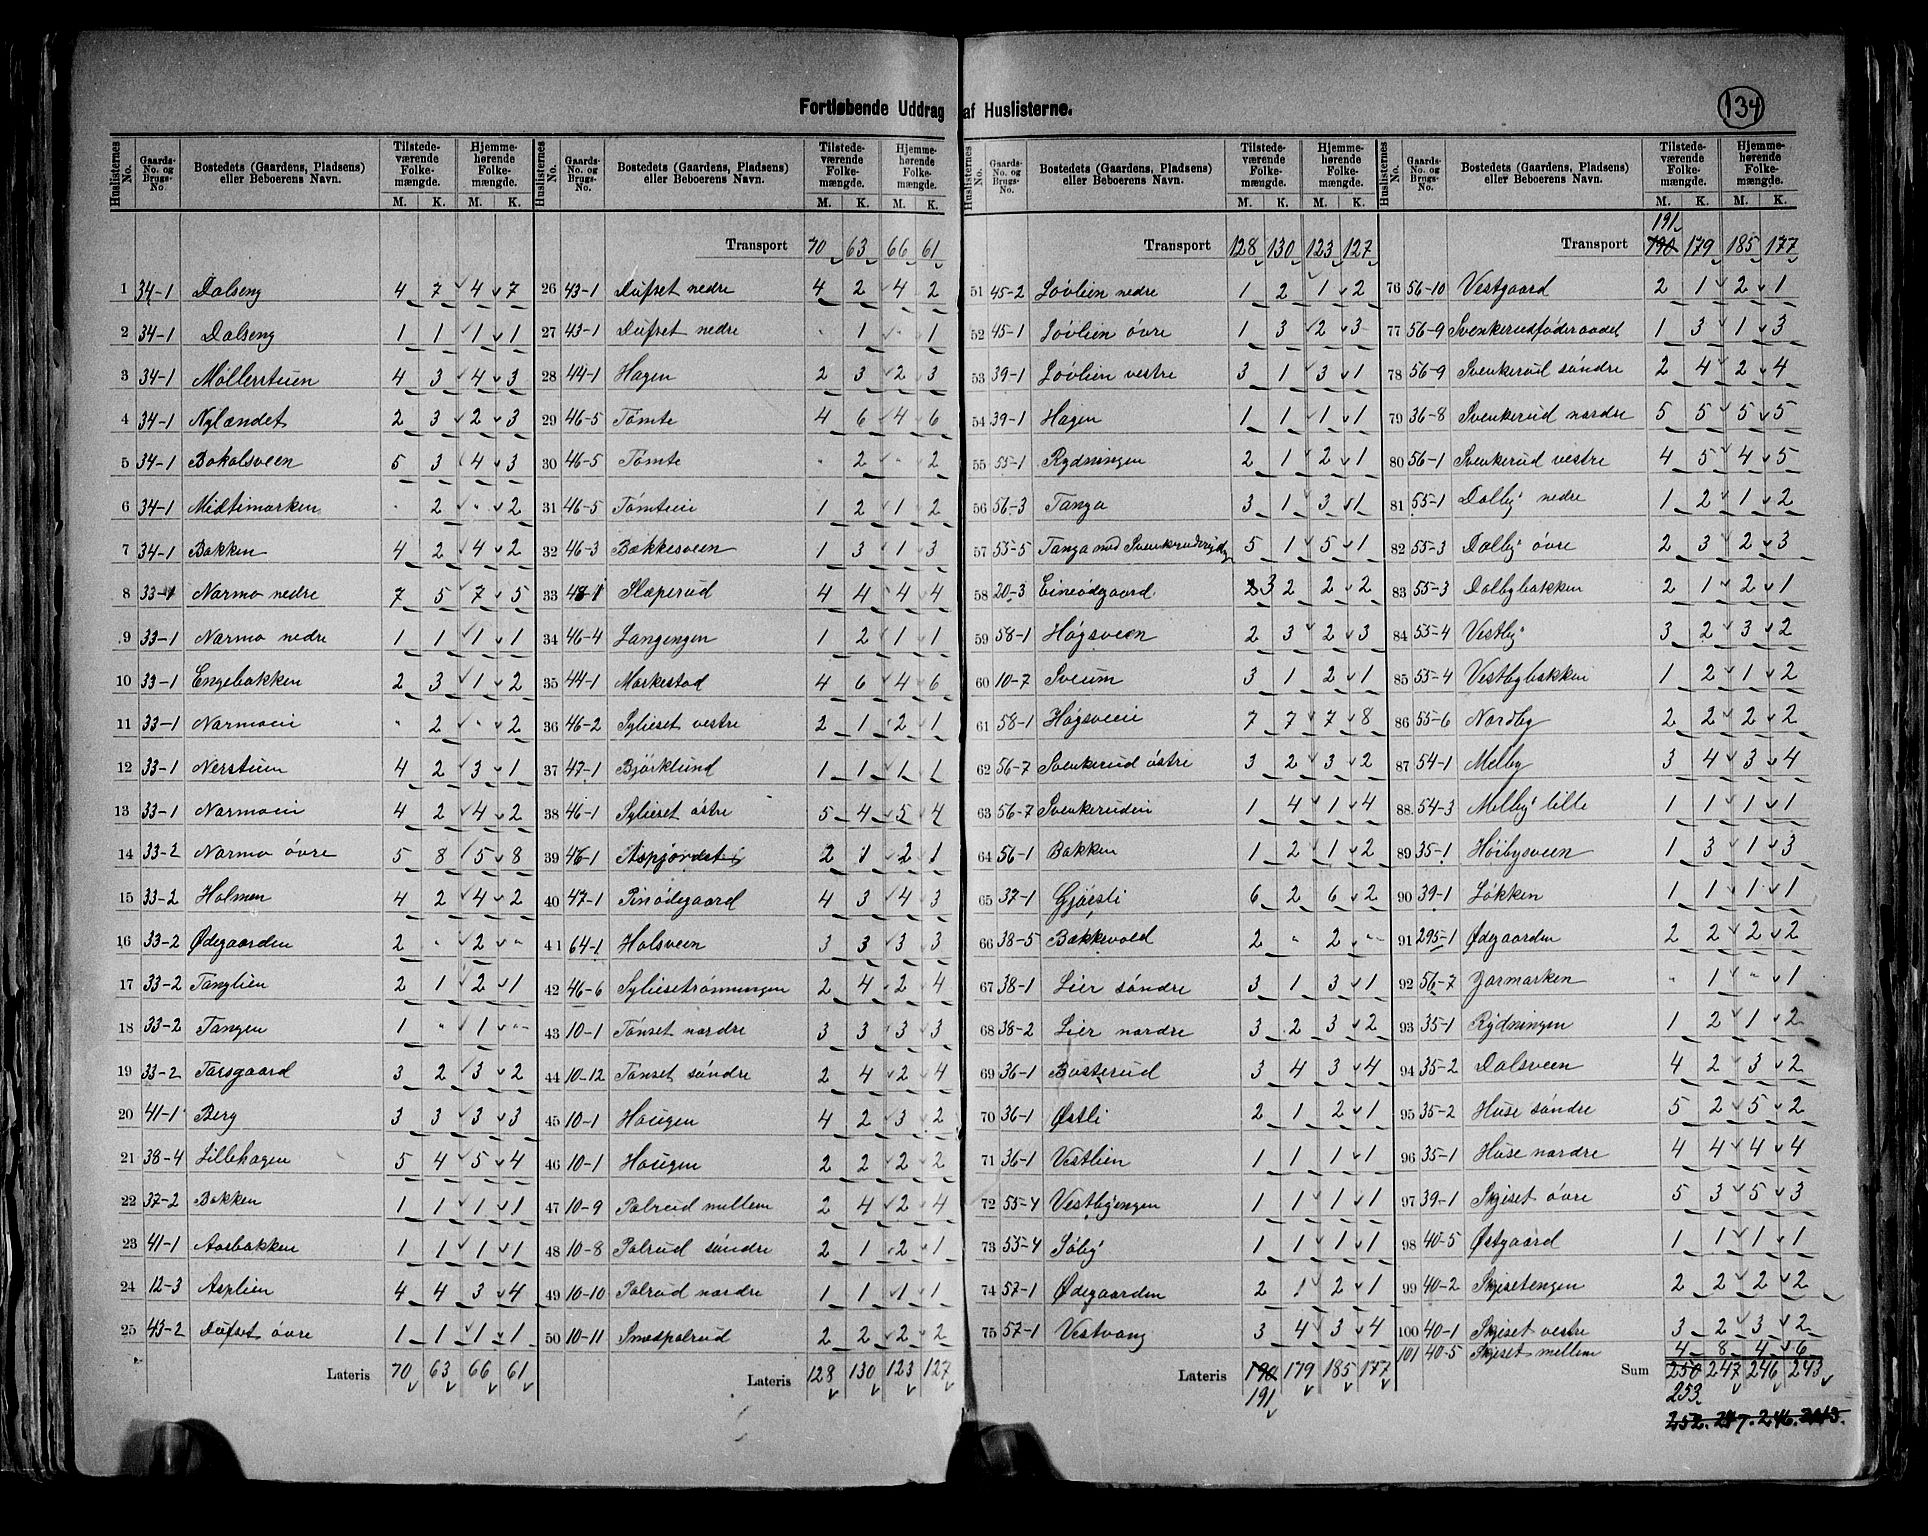 Fortløbende Uddrag af Huslisterne.
134
Huslisternes No. Gaards-No. og Brugs-No. Bostedets (Gaardens, Pladsens) eller Beboerens Navn. Tilstedeværende Folkemængde. M. K. Hjemmehørende Folkemængde. M. K.
1 34-1 Dalseng 4 7 4 7
2 34-1 Dalseng 1 1 1 1
3 34-1 Møllerstuen 4 3 4 3
4 34-1 Nylændet 2 3 2 3
5 34-1 Bakalsveen 5 3 4 3
6 34-1 Midtimarken " 2 " 2
7 34-1 Bakken 4 2 4 2
8 33-1 Narmo nedre 7 5 7 5
9 33-1 Narmo nedre 1 1 1 1
10 33-1 Engebakken 2 3 1 2
11 33-1 Narmoeii " 2 " 2
12 33-1 Nerstuen 4 2 3 1
13 33-1 Narmoeii 4 2 4 2
14 33-2 Narmo övre 5 8 5 8
15 33-2 Holmen 4 2 4 2
16 33-2 Ødegaarden 2 " 2 "
17 33-2 Tanglien 2 1 2 1
18 33-2 Tangen 1 " 1 "
19 33-2 Tarsgaard 3 2 3 2
20 41-1 Berg 3 3 3 3
21 38-4 Lillehagen 5 4 5 4
22 37-2 Bakken 1 1 1 1
23 41-1 Aasbakken 1 1 1 1
24 12-3 Asplien 4 4 3 4
25 43-2 Dufset övre 1 1 1 1
Lateris 70 63 66 61
Huslisternes No. Gaards-No. og Brugs-No. Bostedets (Gaardens, Pladsens) eller Beboerens Navn. Tilstedeværende Folkemængde. M. K. Hjemmehørende Folkemængde. M. K.
Transport 70 63 66 61
26 43-1 Dufset nedre 4 2 4 2
27 43-1 Dufset nedre " 1 " 1
28 44-1 Hagen 2 3 2 3
29 46-5 Tømte 4 6 4 6
30 46-5 Tømte " 2 " 2
31 46-5 Tømteeie 1 2 1 2
32 46-3 Bækkesveen 1 3 1 3
33 48-1 Slæperud 4 4 4 4
34 46-4 Langengen 1 2 1 1
35 44-1 Markestad 4 6 4 6
36 46-2 Sylieset vestre 2 1 2 1
37 47-1 Bjørklund 1 1 1 1
38 46-1 Sylieset östre 5 4 5 4
39 46-1 2 1 2 1
40 47-1 Pinødegaard 4 3 4 3
41 64-1 Holsveen 3 3 3 3
42 46-6 Syliesetrønningen 2 4 2 4
43 10-1 Tønset nordre 3 3 3 3
44 10-12 Tønset søndre 2 4 2 4
45 10-1 Haugen 4 2 3 2
46 10-1 Haugen 2 2 2 2
47 10-9 Palrud mellem 2 4 2 4
48 10-8 Palrud søndre 2 1 2 1
49 10-10 Palrud nordre 1 1 1 1
50 10-11 Smedpalrud 2 2 2 2
Lateris 128 130 123 127
Huslisternes No. Gaards-No. og Brugs-No. Bostedets (Gaardens, Pladsens) eller Beboerens Navn. Tilstedeværende Folkemængde. M. K. Hjemmehørende Folkemængde. M. K.
Transport 128 130 123 127
51 45-2 Løvlien nedre 1 2 1 2
52 45-1 Løvlien övre 1 3 2 3
53 39-1 Løvlien vestre 3 1 3 1
54 39-1 Hagen 1 1 1 1
55 55-1 Rydningen 2 1 2 1
56 56-3 Tanga 3 1 3 1
57 55-5 Tanga med 5 1 5 1
58 20-3 Eineødgaard 3 2 2 2
59 58-1 Høgsveen 2 3 2 3
60 10-7 Sveum 3 1 2 1
61 58-1 Høgsveen 7 7 7 8
62 56-7 Svenkerud østre 3 2 3 2
63 56-7 Svenkerudeii 1 4 1 4
64 56-1 Bakken 1 2 1 2
65 37-1 Gjöesli 6 2 6 2
66 38-5 Bækkevold 2 " 2 "
67 38-1 Lier søndre 3 1 3 1
68 38-2 Lier nordre 3 2 3 2
69 36-1 Busterud 3 4 3 4
70 36-1 Østli 2 1 2 1
71 36-1 Vestlien 1 1 1 1
72 55-4 Vestbyengen 1 1 1 1
73 55-4 Søby 1 1 1 1
74 57-1 Ødegaarden 2 1 2 1
75 57-1 Vestvang 3 4 3 4
Lateris 190 179 185 177
191
Huslisternes No. Gaards-No. og Brugs-No. Bostedets (Gaardens, Pladsens) eller Beboerens Navn. Tilstedeværende Folkemængde. M. K. Hjemmehørende Folkemængde. M. K.
191
Transport 190 179 185 177
76 56-10 Vestgaard 2 1 2 1
77 56-9 Svenkerudføderaadet 1 3 1 3
78 56-9 Svenkerud søndre 2 4 2 4
79 36-8 Svenkerud nordre 5 5 5 5
80 56-1 Svenkerud vestre 4 5 4 5
81 55-1 Dalby nedre 1 2 1 2
82 55-3 Dalby övre 2 3 2 3
83 55-3 Dalbybakken 2 1 2 1
84 55-4 Vestby 3 2 3 2
85 55-4 Vestbybakken 1 2 1 2
86 55-6 Nordby 2 2 2 2
87 54-1 Melby 3 4 3 4
88 54-3 Melby lille 1 1 1 1
89 35-1 Høibysveen 1 3 1 3
90 39-1 Løkken 1 1 1 1
91 295-1 Ødegaarden 2 2 2 2
92 56-7 Jarmarken " 1 " 1
93 35-1 Rydningen 1 2 1 2
94 35-2 Dalsveen 4 2 3 2
95 35-2 Huse søndre 5 2 5 2
96 35-1 Huse nordre 4 4 4 4
97 39-1 Skjset övre 5 3 5 3
98 40-5 Østgaard 1 1 1 1
99 40-2 Skjsetengen 2 2 2 2
100 40-1 Skjset vestre 3 2 3 2
101 40-5 Skjset mellem 4 8 4 6
Sum 250 247 246 243
253
252. 247. 246. 243.